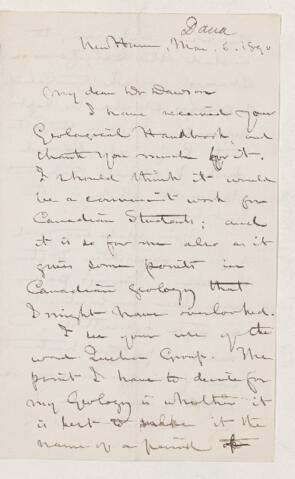 Dana
New Haven, Mar. 6. 1890
My dear Dr Dawson
I have received your
Geological Handbook, and
thank you much for it.
I should think it would
be a convenient work for
Canadian Students; and
it is so for me also as it
gives some points in
Canadian geology that
I might have overlooked.
I see your use of the
word Quebec Group. The
point I have to decide for
my Geology is whether it
is best to make it the
name of a period